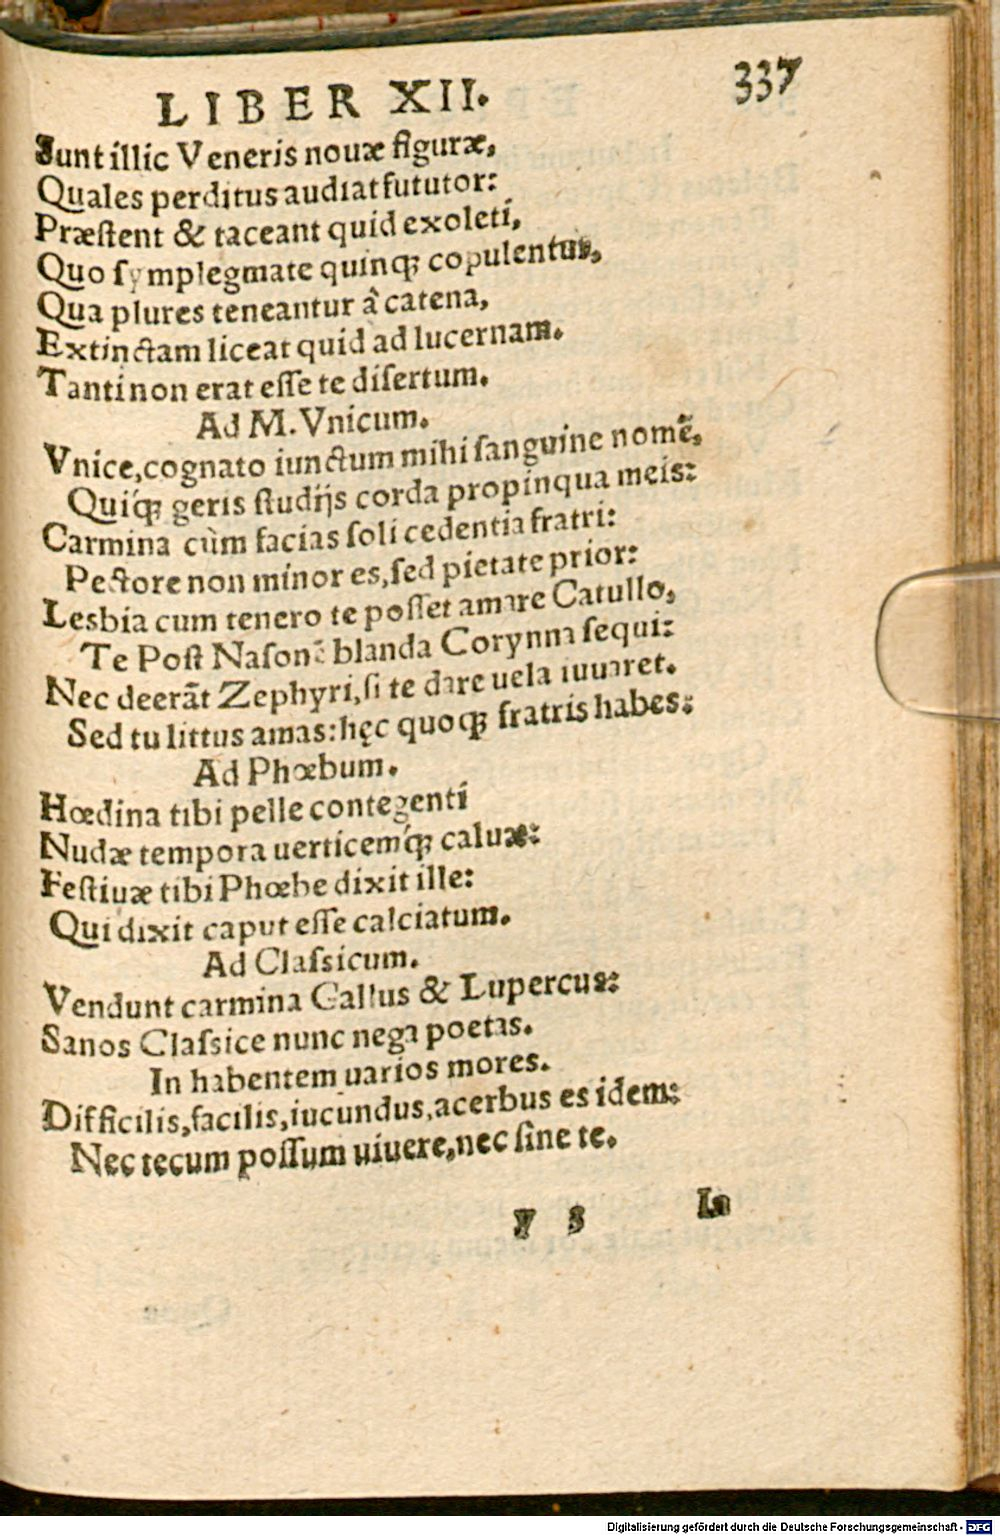 LIBER XII. 337
Sunt illic Veneris nouæ figuræ,
Quales perditus audiat fututor:
Præstent & taceant quid exoleti,
Quo symplegmate quinqꝫ copulentur,
Qua plures teneantur â catena,
Extinctam liceat quid ad lucernam.
Tanti non erat esse te disertum.
Ad M. Vnicum.
Vnice, cognato iunctum mihi sanguine nomẽ,
Quiqꝫ́ geris studijs corda propinqua meis:
Carmina cùm facias soli cedentia fratri:
Pectore non minor es, sed pietate prior:
Lesbia cum tenero te posset amare Catullo,
Te Post Nasonẽ blanda Corynna sequi:
Nec deerãt Zephyri, si te dare uela iuuaret.
Sed tu littus amas: hęc quoqꝫ fratris habes:
Ad Phœbum.
Hœdina tibi pelle contegenti
Nudæ tempora uerticemqꝫ́ caluæ:
Festiuæ tibi Phœbe dixit ille:
Qui dixit caput esse calciatum.
Ad Classicum.
Vendunt carmina Gallus & Lupercus:
Sanos Classice nunc nega poetas.
In habentem uarios mores.
Difficilis, facilis, iucundus, acerbus es idem:
Nec tecum possum uiuere, nec sine te.
y 3 In
Digitalisierung gefördert durch die Deutsche Forschungsgemeinschaft - DFG